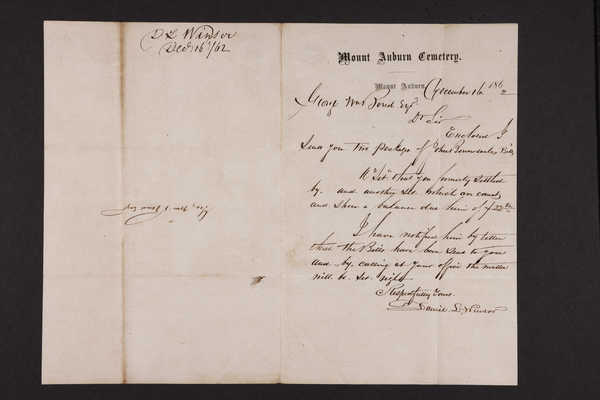 D L Winsor
Dec 16th /62
Mount Auburn Cemetery.
Mount Auburn December 16 1862
George Wm Bond Esqr
Dr Sir
Enclosed I
Send you two package of John Bills
that you formerly Settled
by and another Set which
and Show a balance due him of
I have notified him by letter
that the Bills have been Sent to you
and by calling at your office the matter
will be Set right
Respectfully Yours
Daniel L Winsor